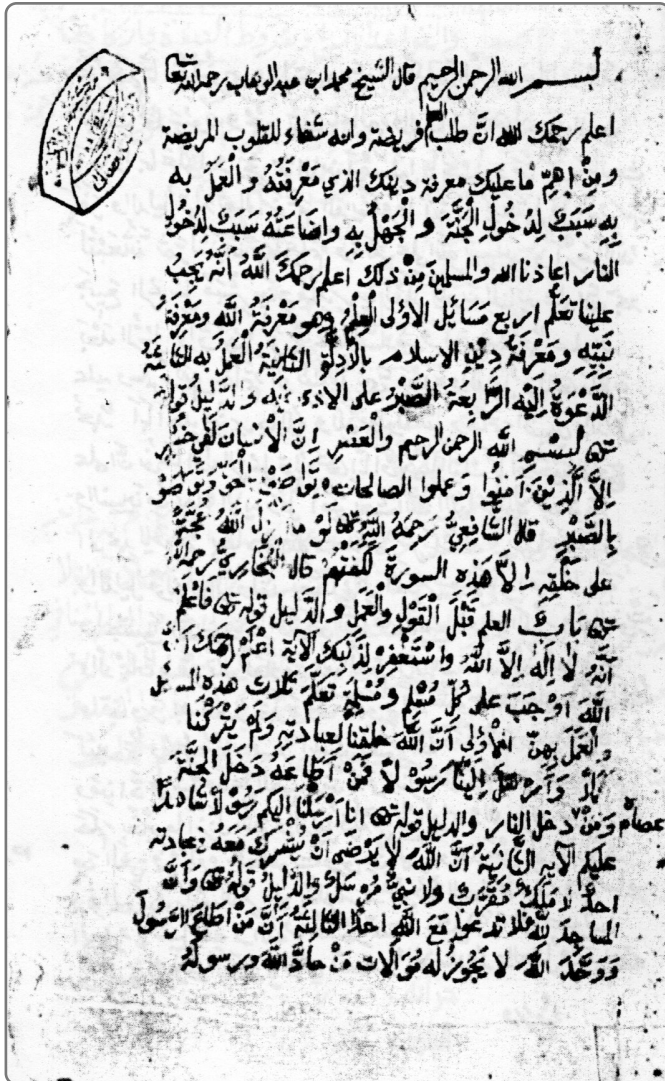 بسم الله الرحمن الرحيم قال الشيخ محمد ابن عبد الوهاب رحمه الله تعا
اعلم رحمك الله انَّ طلب العلم فريضة وانه شفاء للقلوب المريضة
ومِنْ اهمِّ ما عليك معرفة دينك الذي مَعْرِفَتُهُ والْعَمَلُ به
بِهِ سَبَبٌ لِدُخُولِ الْجَنَّةِ والْجَهْلُ بِهِ واضَاعَتُهُ سَبَبٌ لِدُخُولِ
النار اعاذنا الله والمسلمين مِنْ ذلك اعلم رحمكَ اللَّهُ أنَّهُ يَجِبُ
علينا تعلّم اربع مَسَائِل الاوُلى الْعِلْمُ وهو مَعْرِفَةُ اللَّهِ ومَعْرِفَةُ
نَبِيِّهِ ومَعْرِفَةُ دِيْنِ الاسلام بالأدِلَّةِ الثانِيَةُ الْعَمَلُ به الثالِثَةُ
الدَّعْوَةُ اِلَيْهِ الرَّابِعَةُ الصَّبْرُ على الاذى فيه والدَّلِيلُ قوله
تعالى بسْم اللَّه الرحمن الرحيم والْعَصْرِ اِنَّ الْاِنْسَانَ لَفِي خُسْرٍ
اِلاَّ الَّذِيْنَ آمَنُوا وَعملوا الصالحات وتَوَاصَوْ بِالْحَقِّ وتَوَاصَوْ
بِالصَّبْرِ قال الشَّافِعِيُّ رَحِمَهُ اللَّهُ تعالى لَوْ ما اَنْزَلَ اللَّهُ حُجَّةً
على خَلْقِهِ اِلاَّ هَذِهِ السورةَ لَكَفَتْهُمْ قال البُخَارِيُّ رحمه اللَّهُ
تعالى بابٌ العلم قَبْلَ الْقَوْلِ والْعَمَلِ والدَّليل قوله تعالى فاعْلَمْ
أنَّهُ لاَ اِلَهَ اِلاَّ اللَّهُ وَاسْتَغْفِرْ لِذَنْبِكَ الآية اعْلَمْ رَحِمَكَ اللَّهُ أنَّ
اللَّهَ اَوْجَبَ على كُلِّ مُسْلِمٍ ومُسْلِمَةٍ تَعَلُّمَ ثلاث هذه المسائل
والْعَمَلَ بِهِنَّ الْاُوْلى أنَّ اللَّهَ خلقنا لعبادتِهِ وَلَمْ يَتْرُكْنَا
هَمَلاً وَاَرْسَلَ اِلَيْنا رَسُوْلاً فَمَنْ اَطَاعَهُ دَخَلَ الجنَّةَ
عصاه وَمَنْ دخل النار والدليل قوله تعالى انا اَرْسَلْنا اليكم رَسُوْلاً شاهدًا
عليكم الآية الثَّانِيَةُ أنَّ اللَّهَ لا يَرْضَى اَنْ يُشْرَكَ مَعَهُ في عبادته
احدٌ لا مَلَكٌ مُقَرَّبٌ ولا نَبِيٌّ مُرْسَلٌ والدَّلِيلُ قَوْلُهُ تعالى وَأَنَّ
المساجدَ لِلَّهِ فلا تدعوا مَعَ اللَّهِ احدًا الثَّالِثَةُ أنَّ مَنْ اطاع الرَّسُولَ
وَوَحَّدَ اللَّهَ لا يَجُوْزُ له مُوَالات مَنْ حادَّ اللَّهَ ورسولَهُ